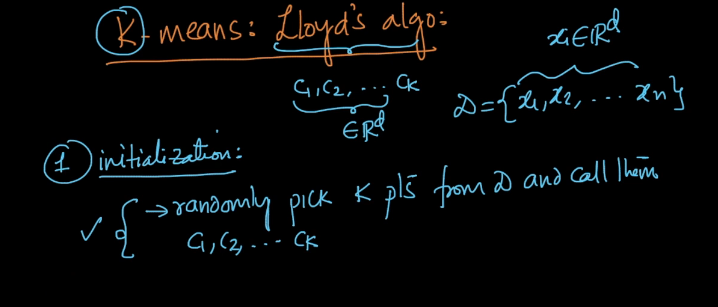 K-means: Lloyd's algo:
xᵢ∈ℝᵈ
C₁, C₂, ... Cₖ
∈ℝᵈ
D={x₁, x₂, ... xₙ}
① initialization:
✓ { → randomly pick K pts from D and call them
C₁, C₂, ... Cₖ